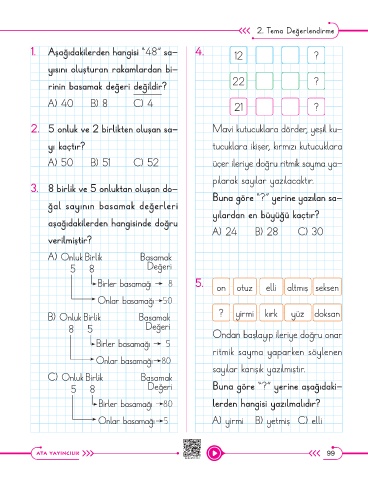 2. Tema Değerlendirme
1. Aşağıdakilerden hangisi "48" sa-
yısını oluşturan rakamlardan bi-
rinin basamak değeri değildir?
A) 40 B) 8 C) 4
2. 5 onluk ve 2 birlikten oluşan sa-
yı kaçtır?
A) 50 B) 51 C) 52
3. 8 birlik ve 5 onluktan oluşan do-
ğal sayının basamak değerleri
aşağıdakilerden hangisinde doğru
verilmiştir?
A) Onluk Birlik Basamak
5 8 Değeri
Birler basamağı → 8
Onlar basamağı → 50
B) Onluk Birlik Basamak
8 5 Değeri
Birler basamağı → 5
Onlar basamağı → 80
C) Onluk Birlik Basamak
5 8 Değeri
Birler basamağı → 80
Onlar basamağı → 5
4.
12 ?
22 ?
21 ?
Mavi kutucuklara dörder, yeşil ku-
tucuklara ikişer, kırmızı kutucuklara
üçer ileriye doğru ritmik sayma ya-
pılarak sayılar yazılacaktır.
Buna göre "?" yerine yazılan sa-
yılardan en büyüğü kaçtır?
A) 24 B) 28 C) 30
5. on otuz elli altmış seksen
? yirmi kırk yüz doksan
Ondan başlayıp ileriye doğru onar
ritmik sayma yaparken söylenen
sayılar karışık yazılmıştır.
Buna göre "?" yerine aşağıdaki-
lerden hangisi yazılmalıdır?
A) yirmi B) yetmiş C) elli
ATA YAYINCILIK
99